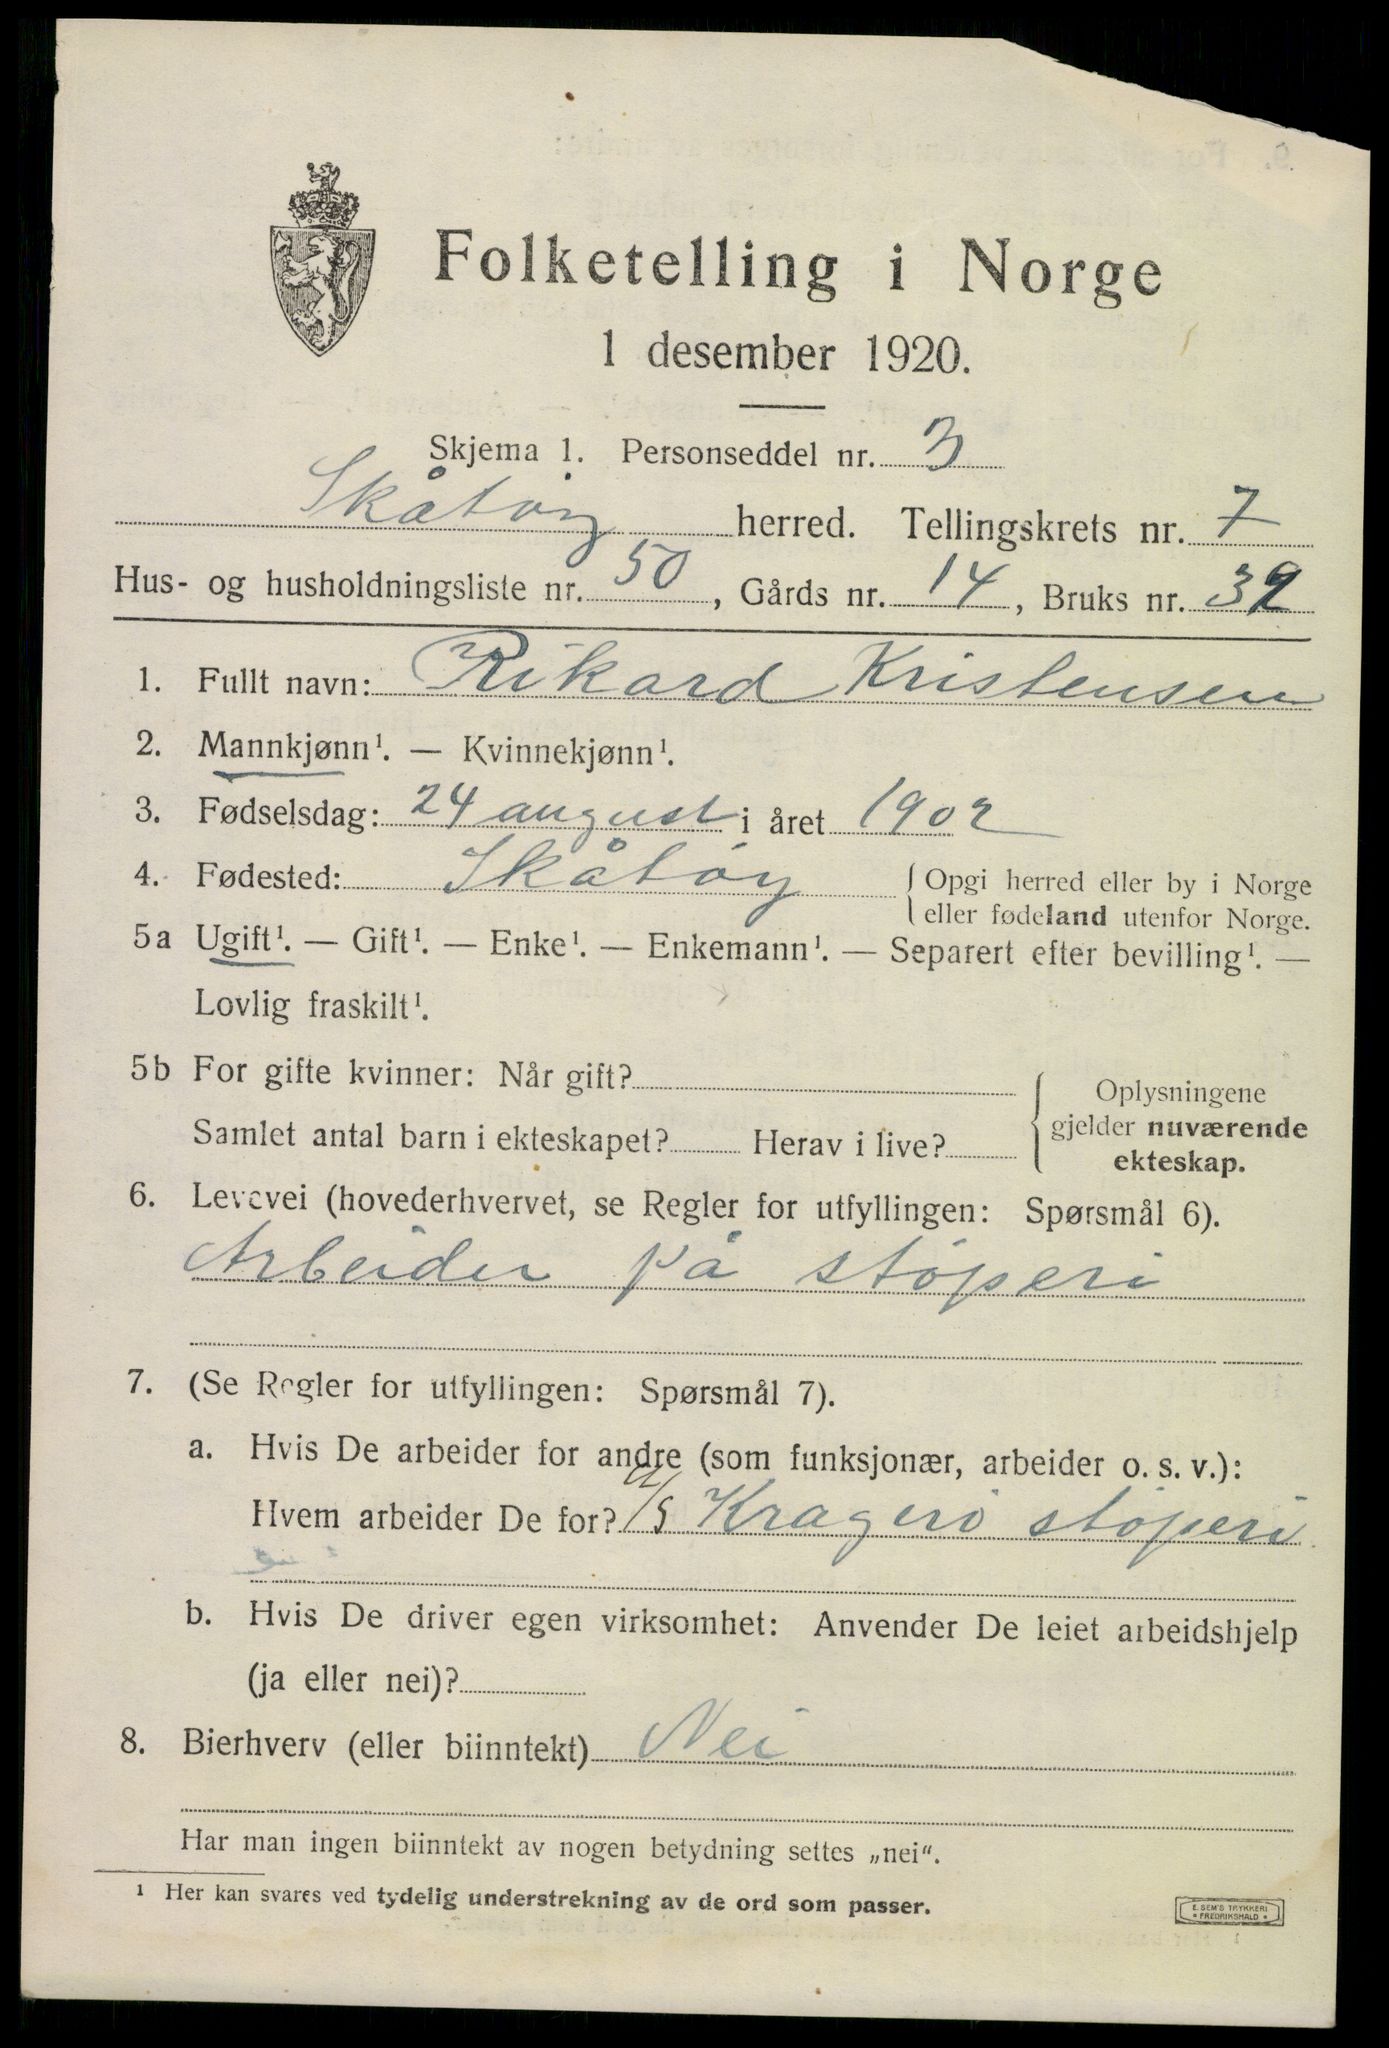 Folketelling i Norge
1 desember 1920.
Skjema 1. Personseddel nr. 3
Skåtöy herred. Tellingskrets nr. 7
Hus- og husholdningsliste nr. 50, Gårds nr. 14, Bruks nr.
1. Fullt navn: Rikard Kristensen
2. Mannkjønn¹. — Kvinnekjønn¹.
3. Fødselsdag: 24 august i året 1902
4. Fødested: Skåtöy { Opgi herred eller by i Norge
eller fødeland utenfor Norge.
5a Ugift¹. — Gift¹. — Enke¹. — Enkemann¹. — Separert efter bevilling¹. —
Lovlig fraskilt¹.
5b For gifte kvinner: Når gift?
Samlet antal barn i ekteskapet? Herav i live?
Oplysningene
gjelder nuværende
ekteskap.
6. Levevei (hovederhvervet, se Regler for utfyllingen: Spørsmål 6).
Arbeider på stöperi
7. (Se Regler for utfyllingen: Spørsmål 7).
a. Hvis De arbeider for andre (som funksjonær, arbeider o. s. v.):
Hvem arbeider De for? A/S Kragerö stöperi
b. Hvis De driver egen virksomhet: Anvender De leiet arbeidshjelp
(ja eller nei)?
8. Bierhverv (eller biinntekt) Nei
Har man ingen biinntekt av nogen betydning settes „nei“.
¹ Her kan svares ved tydelig understrekning av de ord som passer.
E. SEM'S TRYKKERI
• FREDRIKSHALD •